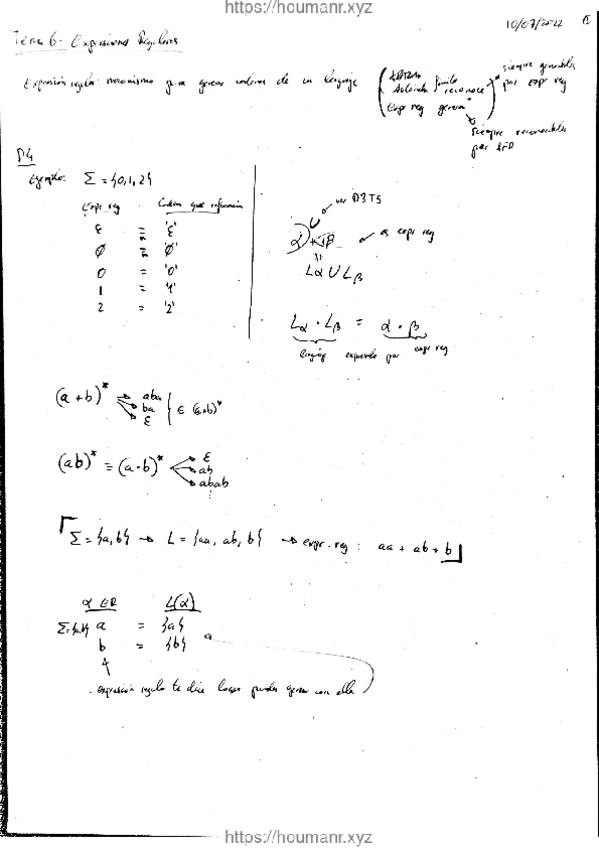 https://houmanr.xyz
10/07/2022
Tema 6. Expresiones Regulares
Expresión regular: mecanismo para generar cadenas de un lenguaje
Autómata finito reconoce
Expr reg genera
siempre generables
por expr reg
siempre reconocibles
por AFD
P4
Ejemplo: Σ = {0,1,2}
Expr reg
ε = 'ε'
∅ = '∅'
0 = '0'
1 = '1'
2 = '2'
ver D3T5
α + β es expr reg
Lα ∪ Lβ
Lα · Lβ = α · β
lenguaje expresado por expr reg
(a + b)* aba
ba ∈ (a+b)*
ε
(ab)* = (a·b)* ε
ab
abab
Σ = {a, b} → L = {aa, ab, b} → expr. reg: aa + ab + b
α ∈ ER L(α)
Σ={a,b} a = {a}
b = {b}
expresión regular te dice lo que puedes generar con ella
https://houmanr.xyz